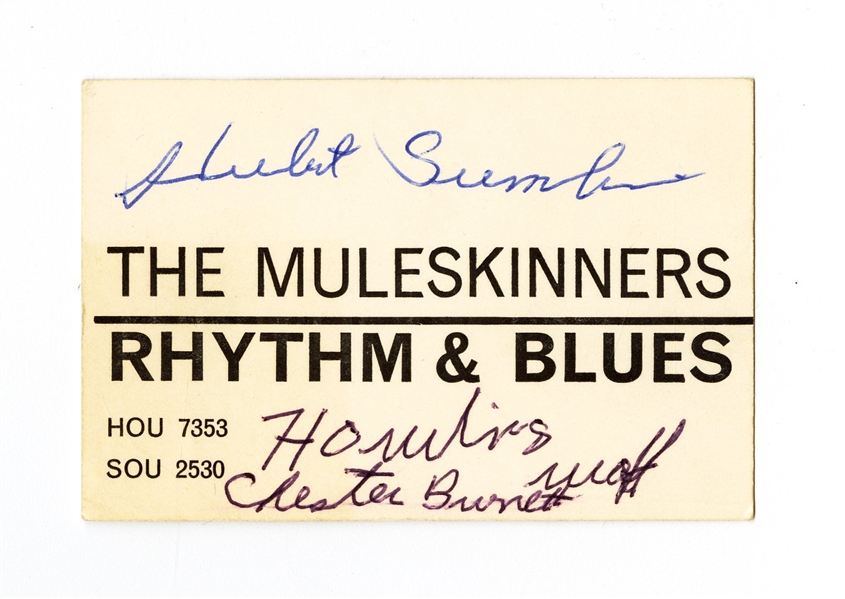 Hubert Sumlin
THE MULESKINNERS
RHYTHM & BLUES
HOU 7353
SOU 2530
Howling Wolf
Chester Burnett